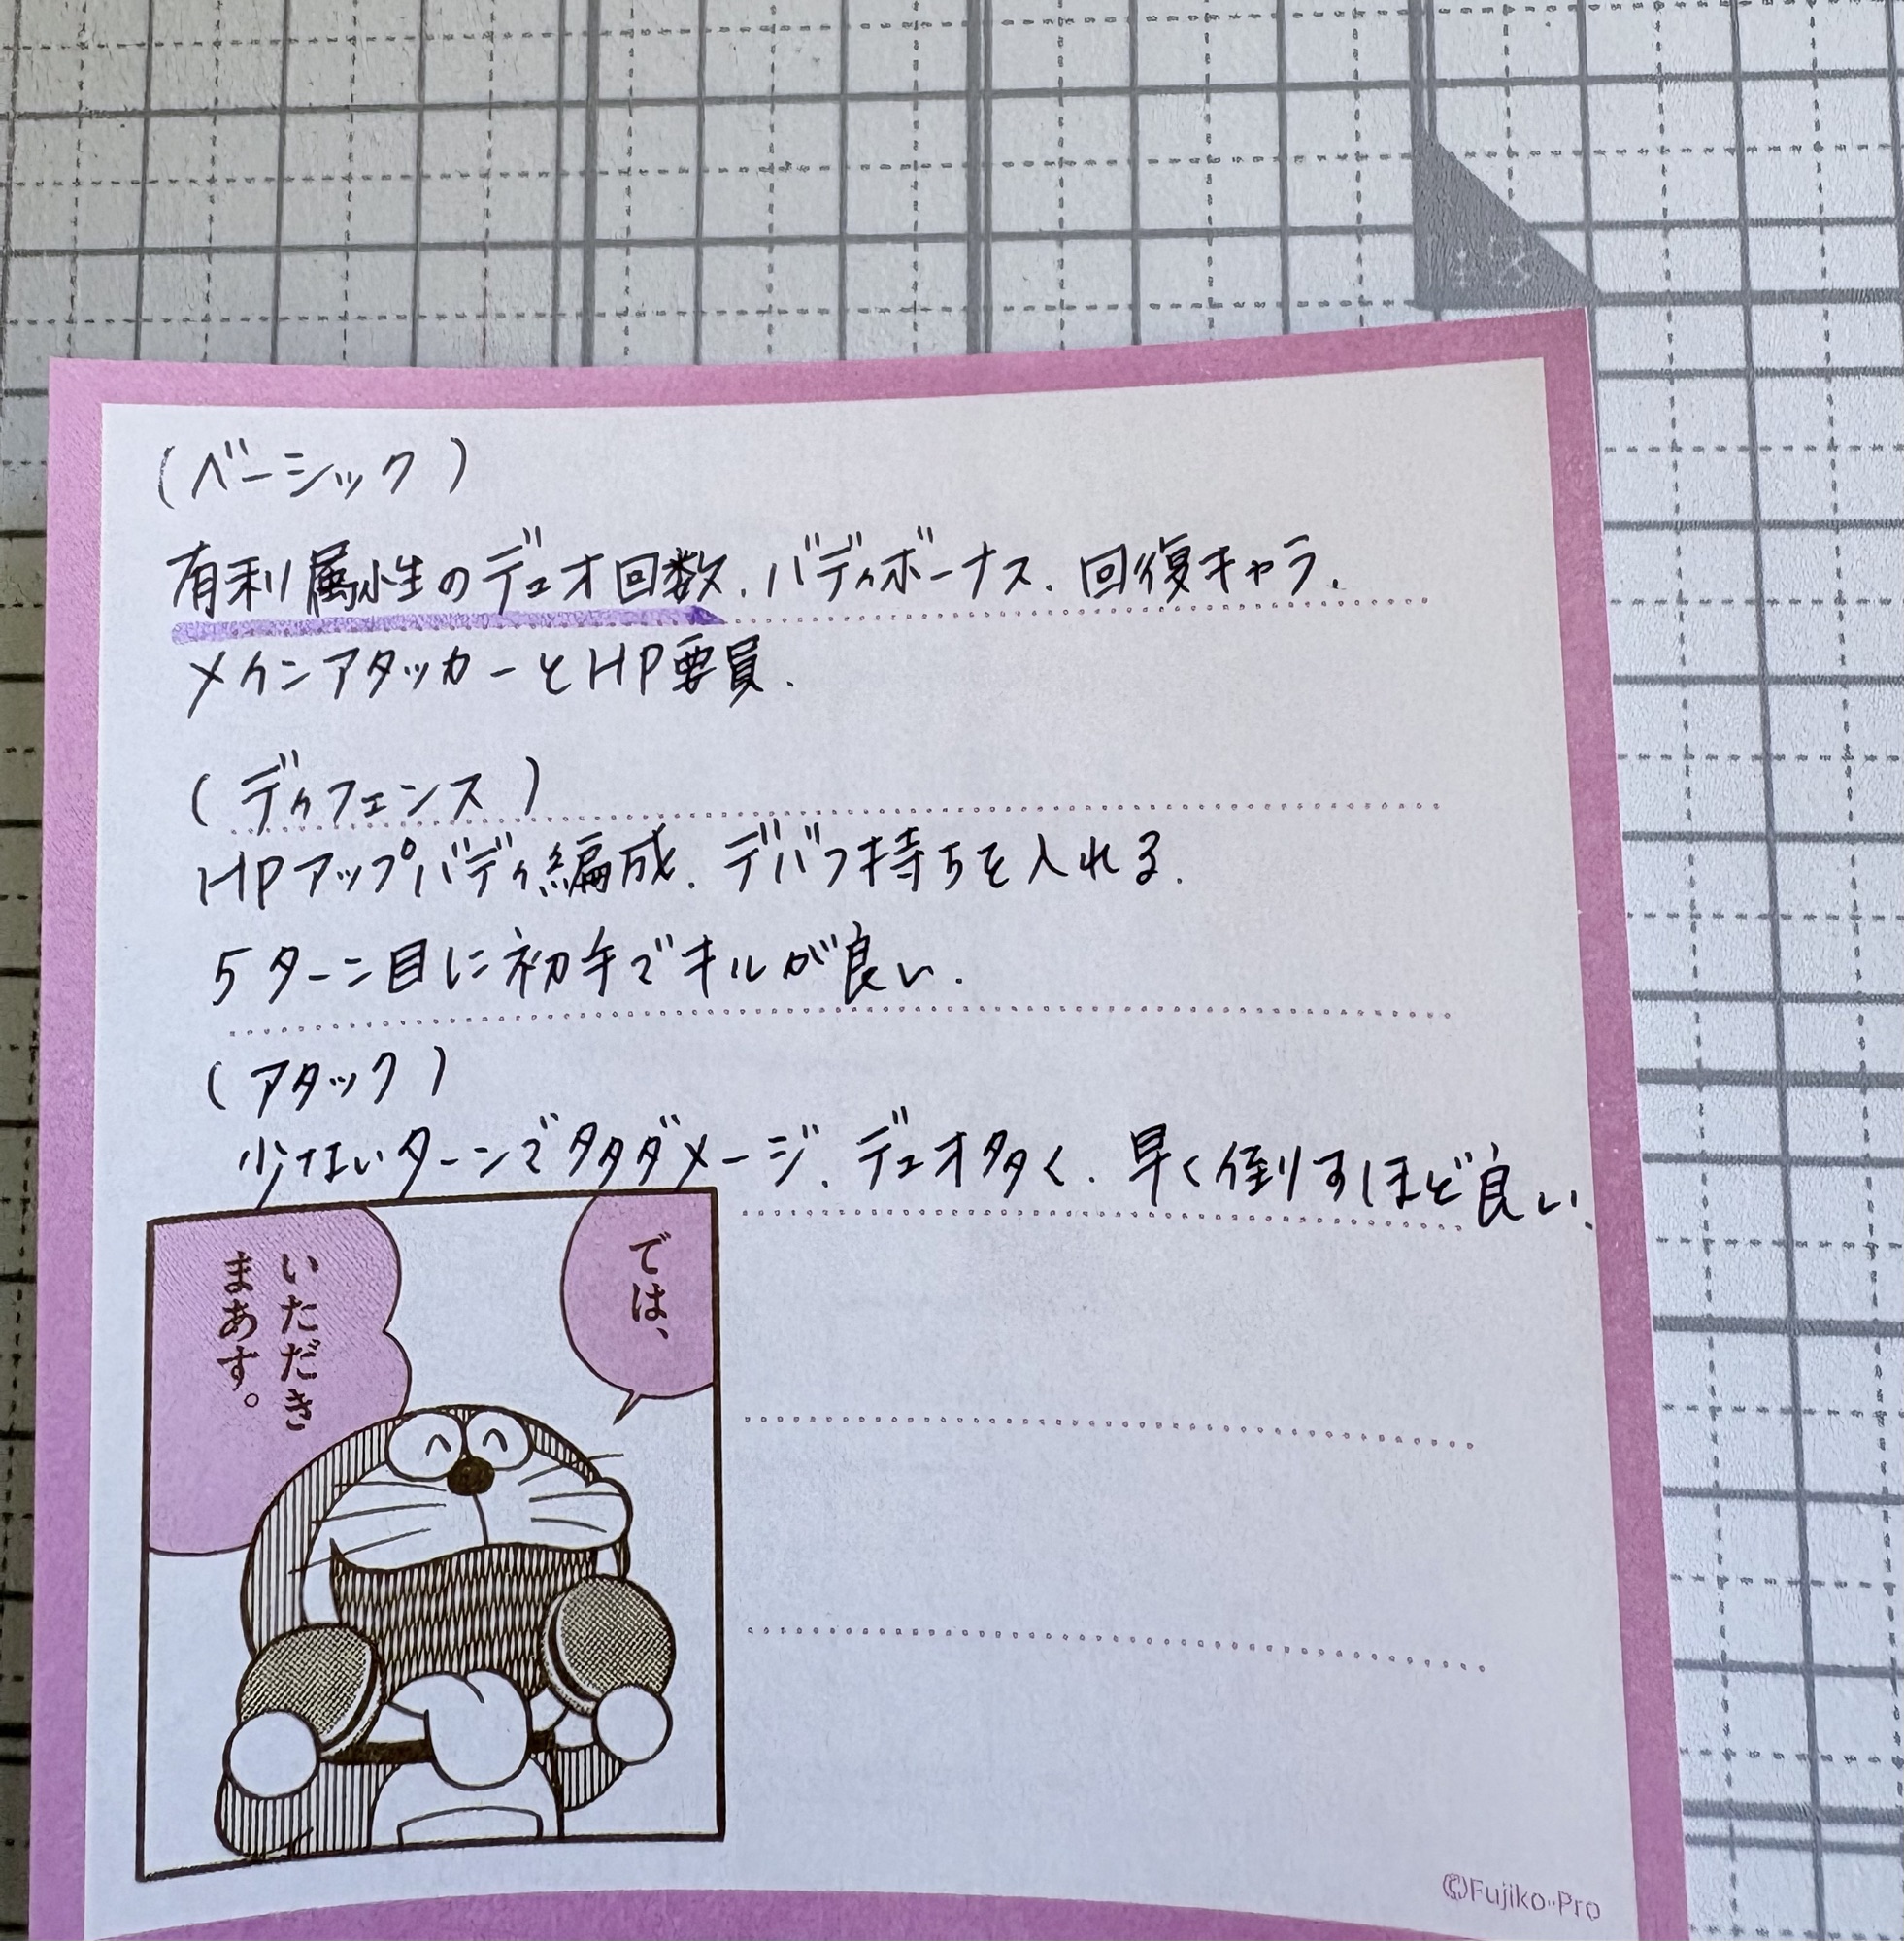 (ベーシック)
有利属性のデュオ回数.バディボーナス.回復キャラ.
メインアタッカーとHP要員.
(ディフェンス)
HPアップバディ編成.デバフ持ちを入れる.
5ターン目に初手でキルが良い.
(アタック)
少ないターンで多ダメージ.デュオ多く.早く倒すほど良い.
では、
いただき
まあす。
©Fujiko-Pro